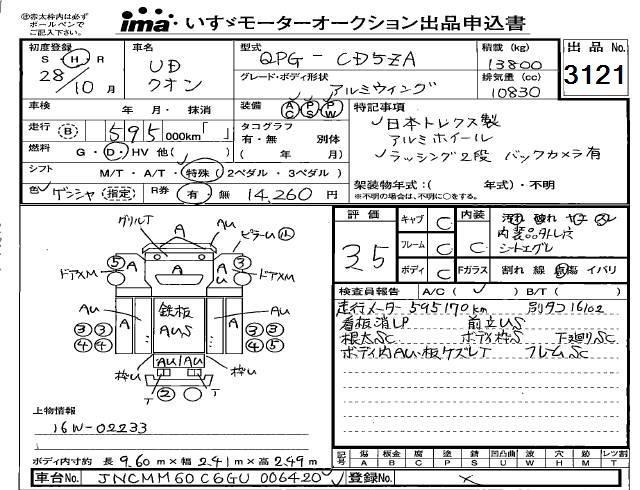 ※赤太枠内は必ず
ボールペンで
ご記入下さい。
ima いすゞモーターオークション出品申込書
初度登録
S・H・R
28/10月
車名
UD
クオン
型式
QPG-CD5ZA
グレード・ボディ形状
アルミウィング
積載(kg)
13800
排気量(cc)
10830
出品No.
3121
車検 年 月・抹消
装備 AC PS PW
走行 B 595 000km「 」
タコグラフ
有・無 別体
( 年 月)
燃料 G・D・HV 他( )
シフト M/T・A/T・特殊(2ペダル・3ペダル)
色 ゲンシャ (指定) R券 有・無 14,260円
特記事項
日本トレクス製
アルミホイール
ラッシング2段 バックカメラ有
架装物年式:( 年式)・不明
※不明の場合は、不明に○をする。
評価
3.5
キャブ C
フレーム C
ボディ C
内装 汚れ 破れ ヤケ スレ
内装品外し穴
シートエグレ
Fガラス 割れ 線 点傷 イバリ
検査員報告 A/C( ) B/T( )
走行メーター595170km 別タコ16/02
看板消しP 前立US
根太SC ボディ枠S 下廻りSC
ボディ内AU・板ケズレT フレームSC
グリルT
A
AU
ピラーU小
A
A
A
⑤
ドアXM
③
ドアXM
AU
A
鉄板
AUS
A
AU
③③
④④
③③
④⑤
枠U
AU
AU
枠U
T
②
T
上物情報
16W-02233
ボディ内寸約 長9.60m×幅2.41m×高2.49m
記号
傷 A
板金 B
腐 C
塗 P
錆 S
凹凸曲 U
波 W
穴 H
割 M
痛 T
レツ割
車台No. JNCMM60C6GU006420
登録No. ×